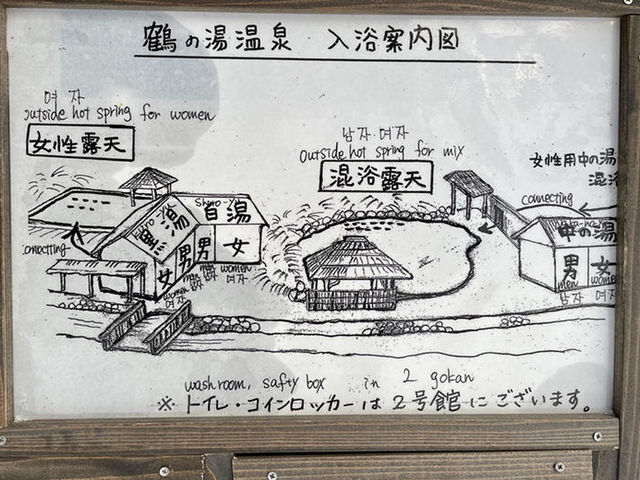 鶴の湯温泉 入浴案内図
여 자
outside hot spring for women
女性露天
남자·여자
Outside hot spring for mix
混浴露天
女性用中の湯
混浴
connecting
Shiro-Yu
白湯
黒湯
connectting
女 男 男 女
women men men women
여자 남자 남자 여자
中の湯
男 女
men wome
남자 여자
washroom, safty box in 2 gokan
※ トイレ・コインロッカーは2号館にございます。